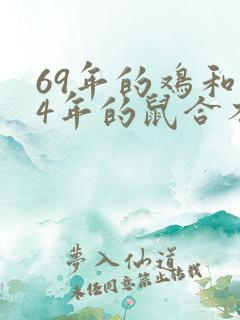 69年的鸡和
4年的鼠合
夢入仙道
未任同意禁止转载